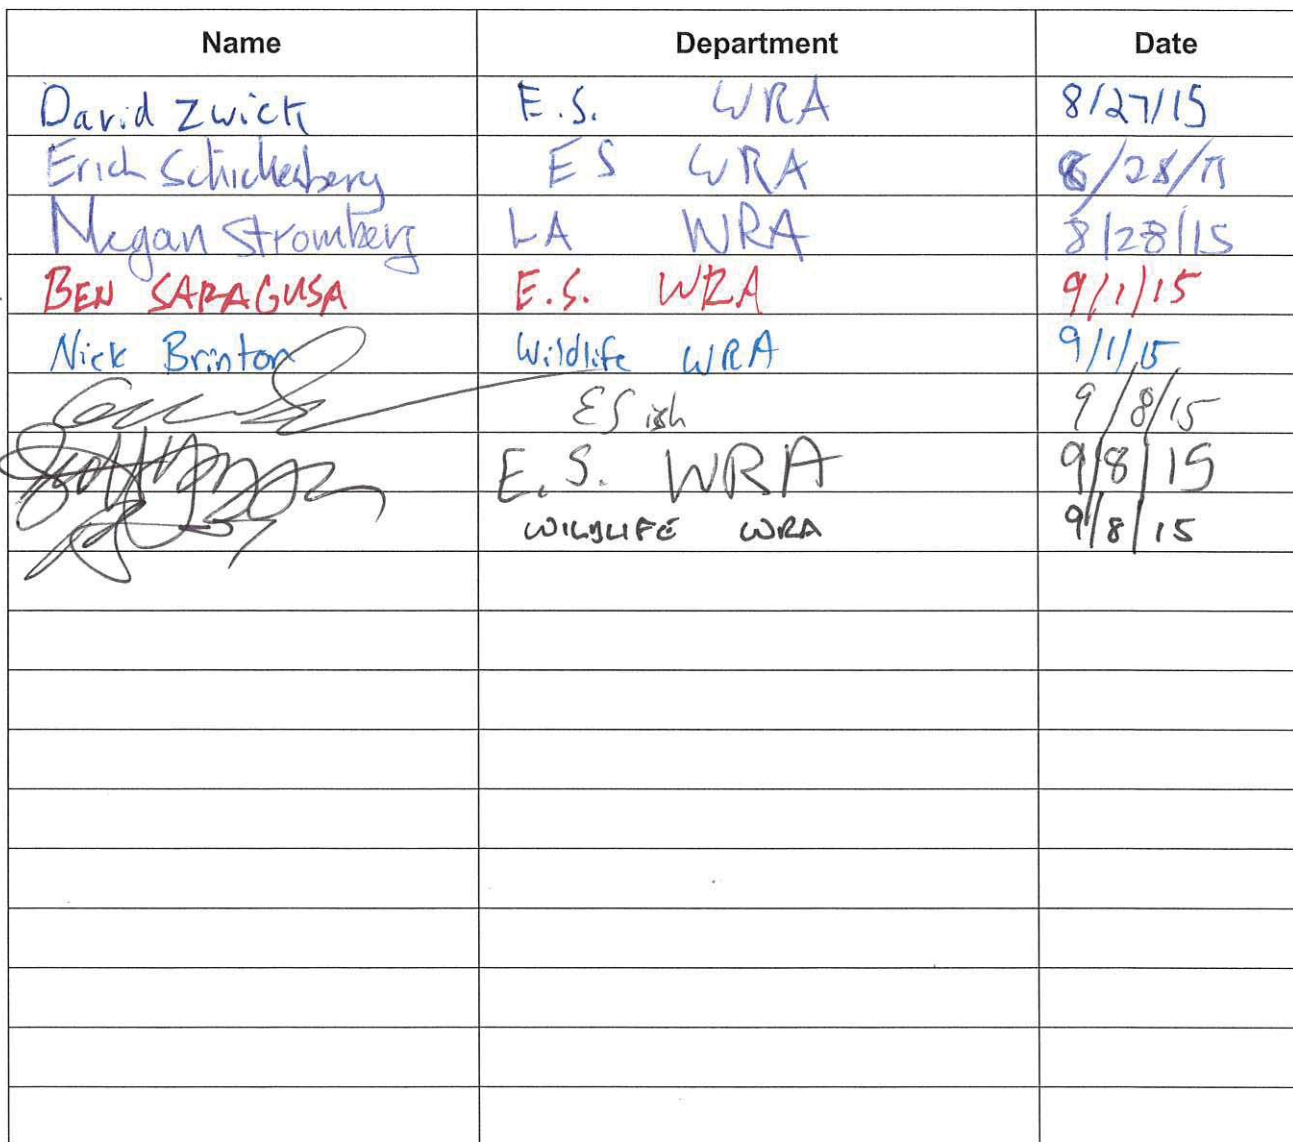 Name Department Date
David Zwick E.S. WRA 8/27/15
Erich Schickenberg ES WRA 8/28/15
Megan Stromberg LA WRA 8/28/15
BEN SARAGUSA E.S. WRA 9/1/15
Nick Brinton Wildlife WRA 9/1/15
9/8/15
E.S. WRA 9/8/15
WILDLIFE WRA 9/8/15